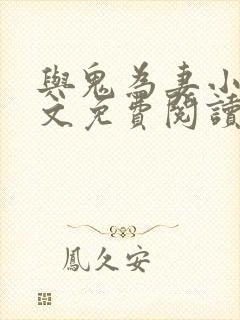 與鬼為妻小
文免費閱讀
鳳久安